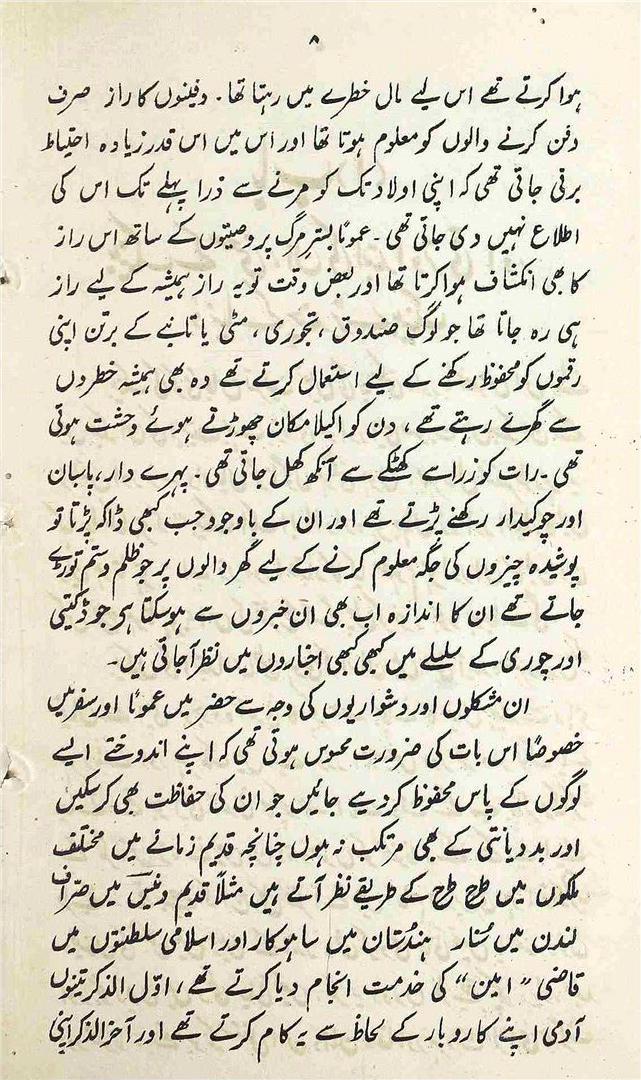 ۸
ہوا کرتے تھے اس لیے مال خطرے میں رہتا تھا۔ دفینوں کا راز صرف
دفن کرنے والوں کو معلوم ہوتا تھا اور اس میں اس قدر زیادہ احتیاط
برتی جاتی تھی کہ اپنی اولاد تک کو مرنے سے ذرا پہلے تک اس کی
اطلاع نہیں دی جاتی تھی۔ عموماً بسترِ مرگ پر وصیتوں کے ساتھ اس راز
کا بھی انکشاف ہوا کرتا تھا اور بعض وقت تو یہ راز ہمیشہ کے لیے راز
ہی رہ جاتا تھا جو لوگ صندوق، تجوری، مٹی یا تانبے کے برتن اپنی
رقموں کو محفوظ رکھنے کے لیے استعمال کرتے تھے وہ بھی ہمیشہ خطروں
سے گھرے رہتے تھے، دن کو اکیلا مکان چھوڑتے ہوئے وحشت ہوتی
تھی۔ رات کو ذرا سے کھٹکے سے آنکھ کھل جاتی تھی۔ پہرے دار، پاسبان
اور چوکیدار رکھنے پڑتے تھے اور ان کے باوجود جب کبھی ڈاکہ پڑتا تو
پوشیدہ چیزوں کی جگہ معلوم کرنے کے لیے گھر والوں پر جو ظلم و ستم توڑے
جاتے تھے ان کا اندازہ اب بھی ان خبروں سے ہوسکتا ہی جو ڈکیتی
اور چوری کے سلسلے میں کبھی کبھی اخباروں میں نظر آجاتی ہیں۔
ان مشکلوں اور دشواریوں کی وجہ سے حضر میں عموماً اور سفر میں
خصوصاً اس بات کی ضرورت محسوس ہوتی تھی کہ اپنے اندوختے ایسے
لوگوں کے پاس محفوظ کردیے جائیں جو ان کی حفاظت بھی کرسکیں
اور بددیانتی کے بھی مرتکب نہ ہوں چنانچہ قدیم زمانے میں مختلف
ملکوں میں طرح طرح کے طریقے نظر آتے ہیں مثلاً قدیم وینس میں صرّاف
لندن میں سُنار ہندُستان میں ساہوکار اور اسلامی سلطنتوں میں
قاضی "امین" کی خدمت انجام دیا کرتے تھے، اوّل الذکر تینوں
آدمی اپنے کاروبار کے لحاظ سے یہ کام کرتے تھے اور آخر الذکر اپنی